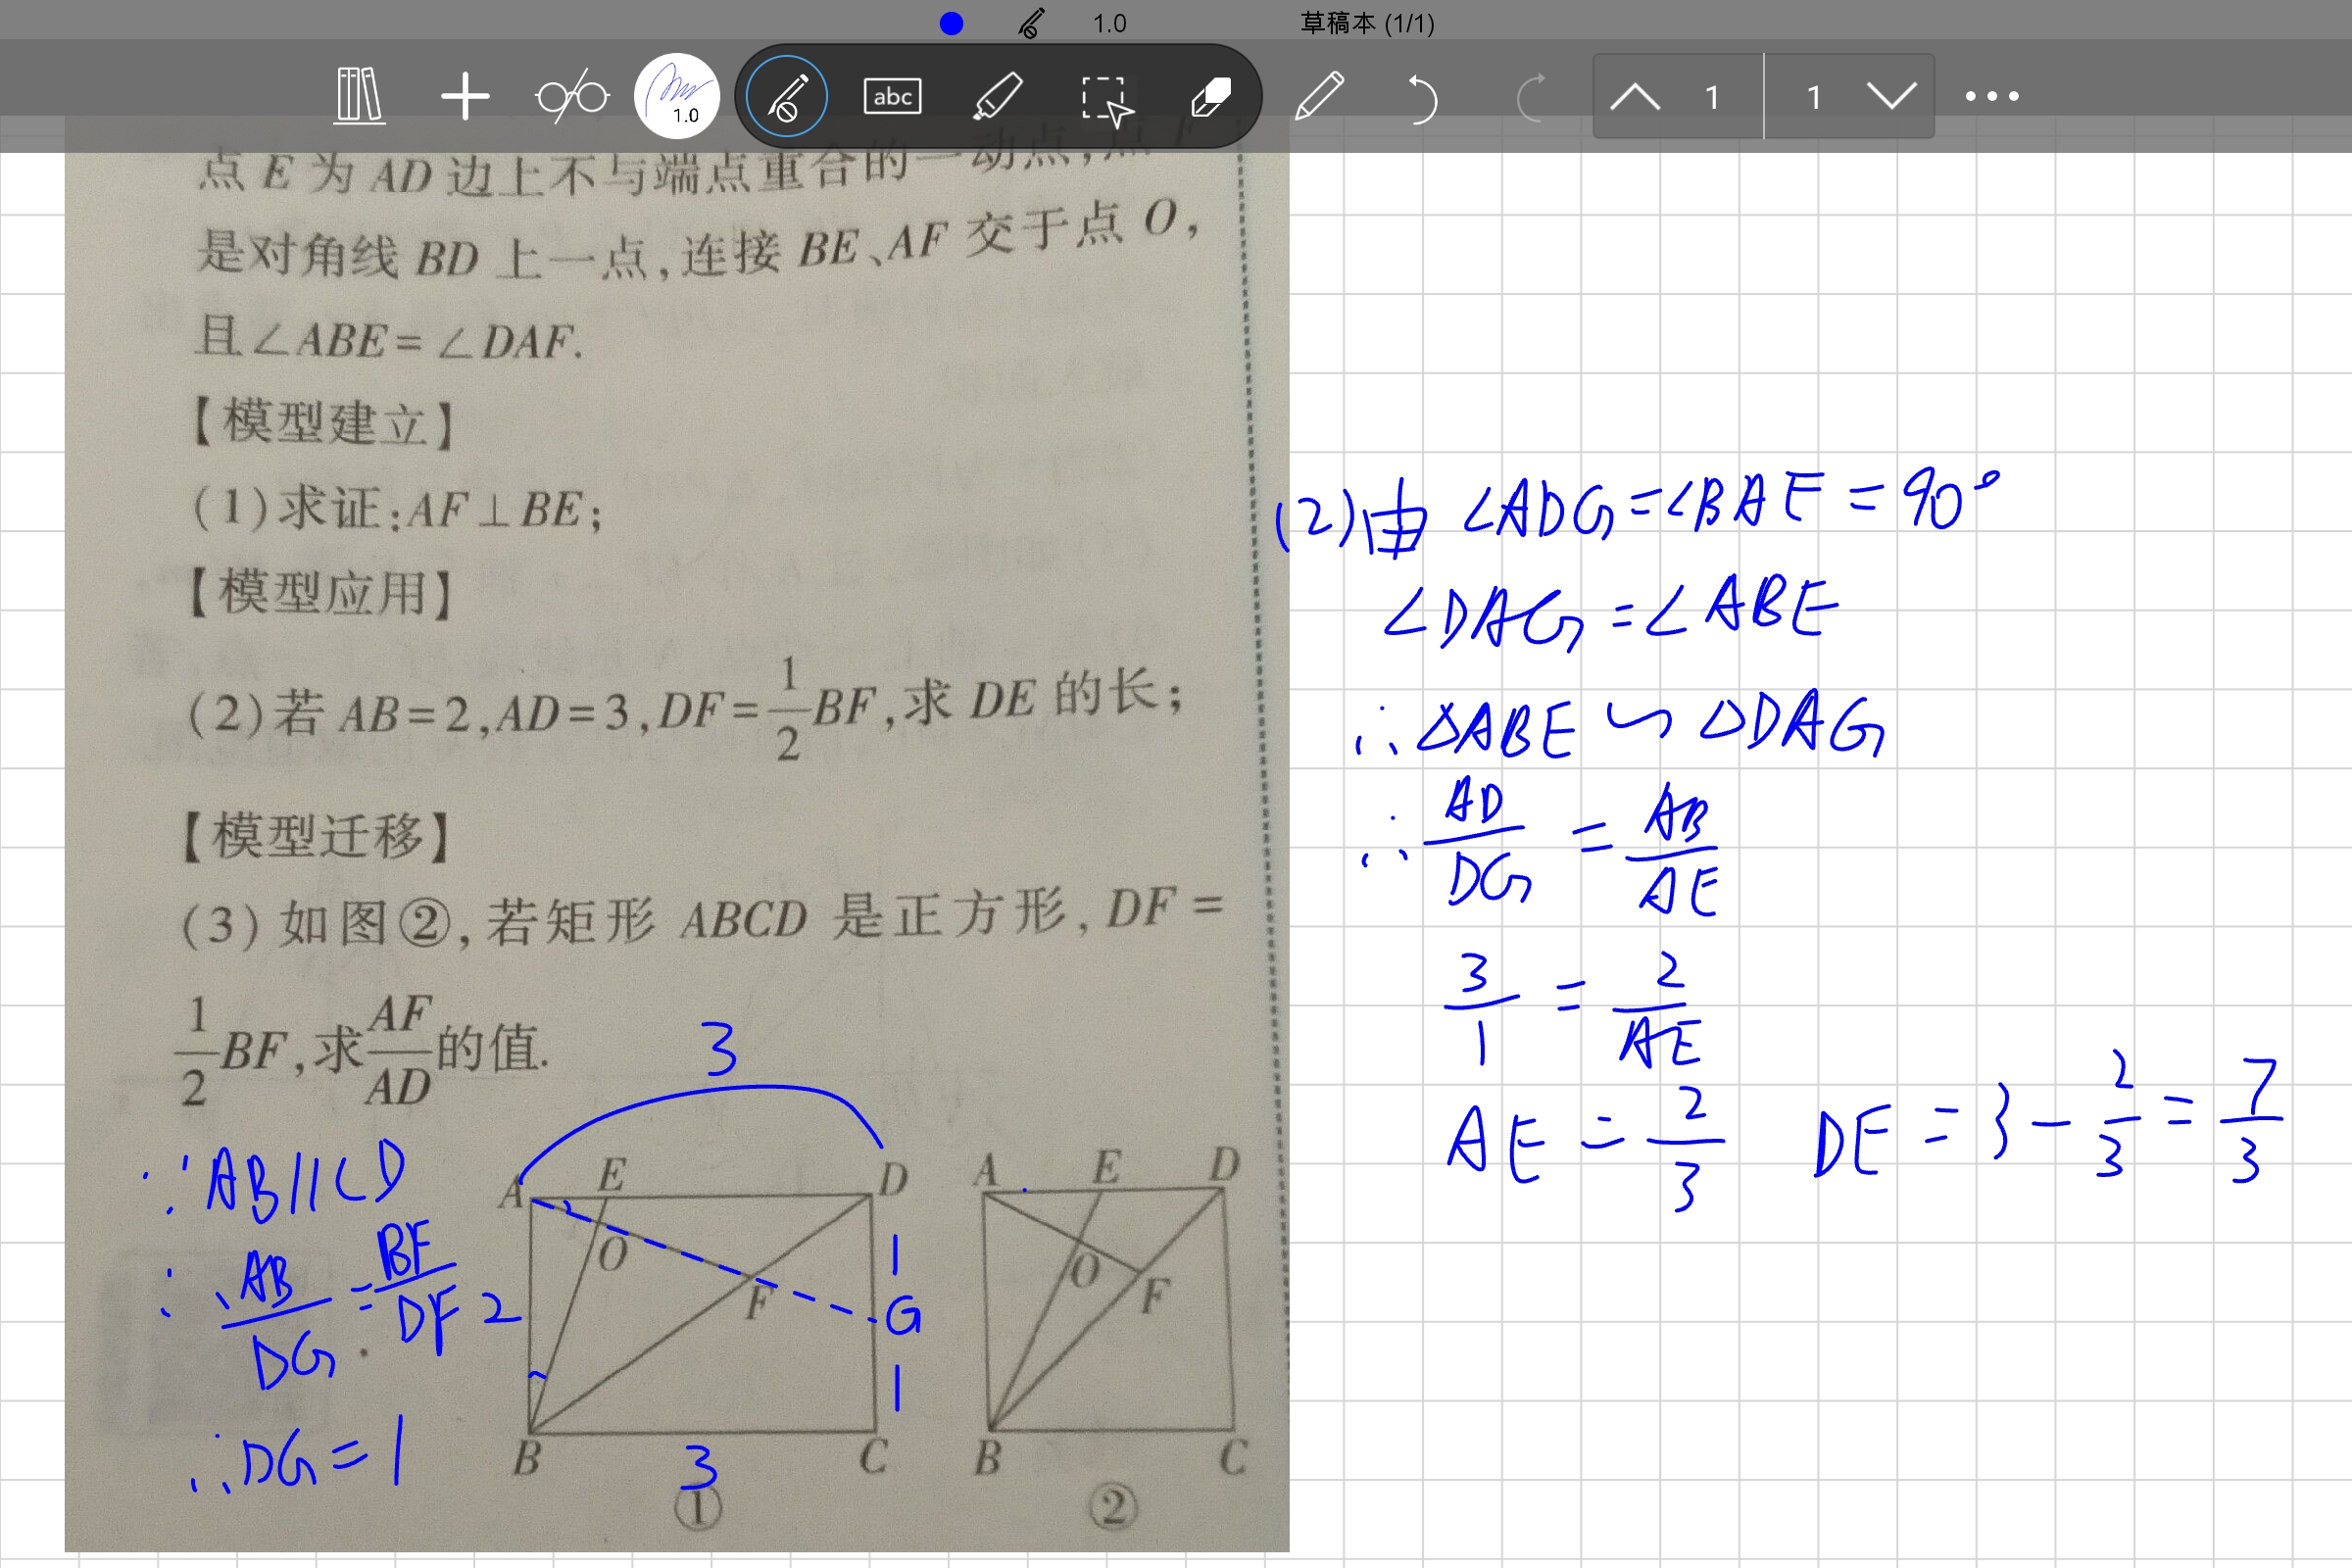 1.0
草稿本 (1/1)
1.0
abc
1
1
点 E 为 AD 边上不与端点重合的一动点,点 F
是对角线 BD 上一点,连接 BE、AF 交于点 O,
且∠ABE=∠DAF.
【模型建立】
(1)求证:AF⊥BE;
【模型应用】
(2)若 AB=2,AD=3,DF=1/2BF,求 DE 的长;
【模型迁移】
(3)如图②,若矩形 ABCD 是正方形,DF=
1/2BF,求AF/AD的值.
3
∵AB∥CD
∴AB/DG=BF/DF
∴DG=1
A E D
O
F
2
1
G
1
B 3 C
①
A E D
O
F
B C
②
(2)由 ∠ADG=∠BAE=90°
∠DAG=∠ABE
∴△ABE∽△DAG
∴AD/DG=AB/AE
3/1=2/AE
AE=2/3 DE=3-2/3=7/3